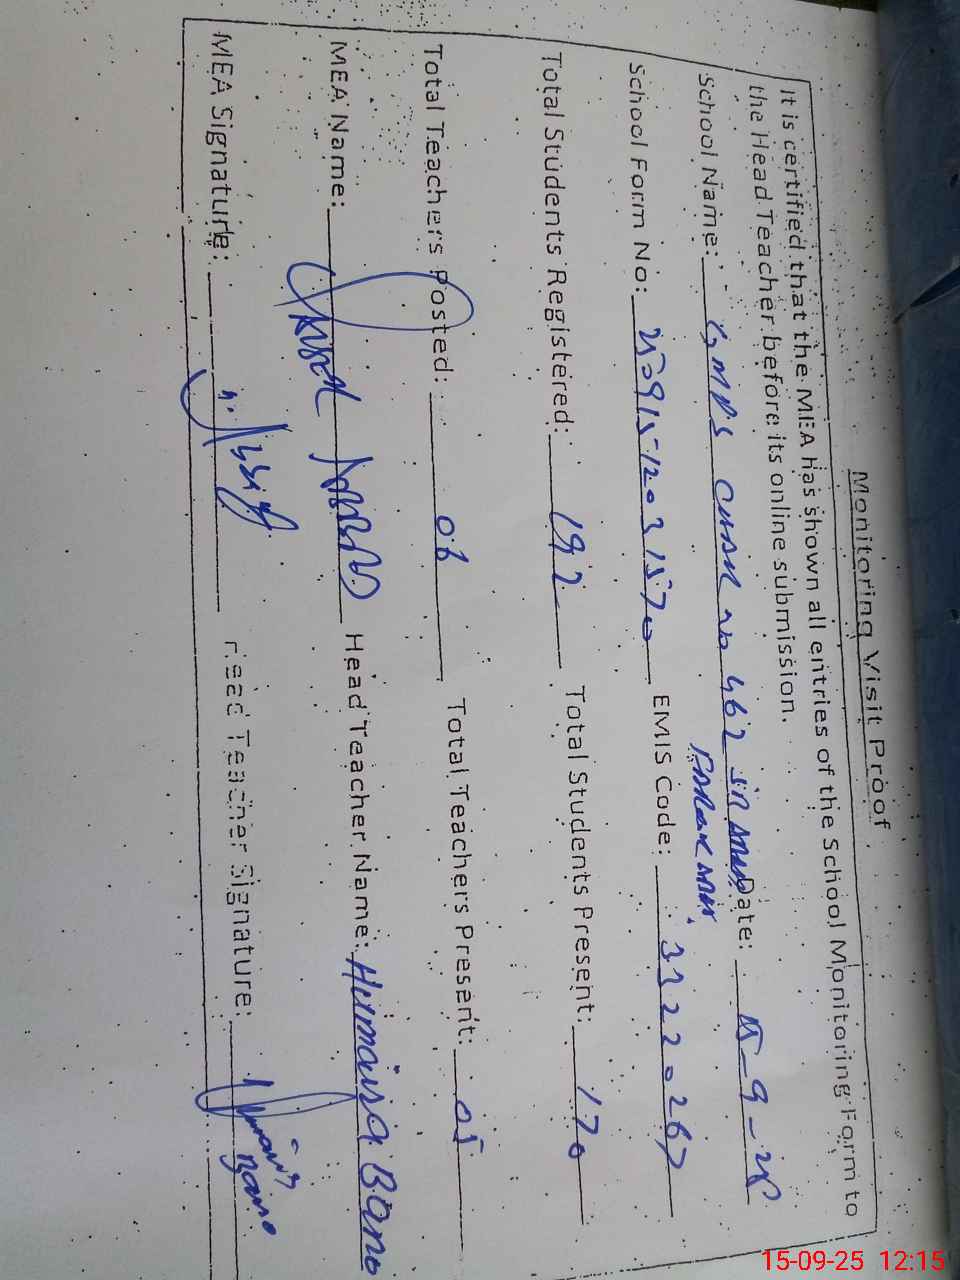 Monitoring Visit Proof
It is certified that the MEA has shown all entries of the School Monitoring Form to
the Head Teacher before its online submission.
School Name: GMPS CHAK NO 462 Date: 15-9-25
School Form No: 250915-12031570 EMIS Code: 33220267
Total Students Registered: 192 Total Students Present: 170
Total Teachers Posted: 06 Total Teachers Present: 05
MEA Name: Head Teacher Name: Humaira Bano
MEA Signature: Head Teacher Signature:
15-09-25 12:15